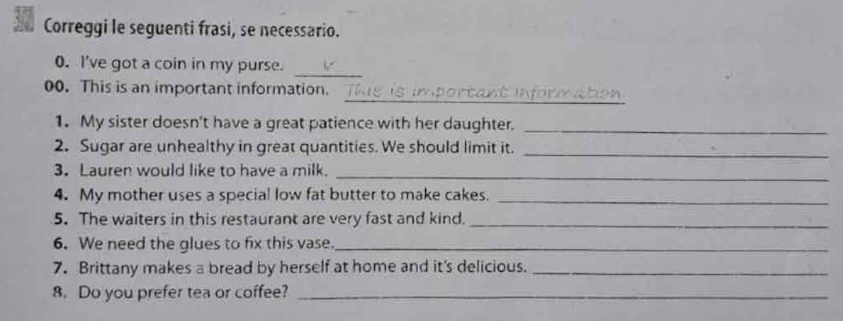 Correggi le seguenti frasi, se necessario.
0. I've got a coin in my purse. v
00. This is an important information. This is important information.
1. My sister doesn't have a great patience with her daughter.
2. Sugar are unhealthy in great quantities. We should limit it.
3. Lauren would like to have a milk.
4. My mother uses a special low fat butter to make cakes.
5. The waiters in this restaurant are very fast and kind.
6. We need the glues to fix this vase.
7. Brittany makes a bread by herself at home and it's delicious.
8. Do you prefer tea or coffee?